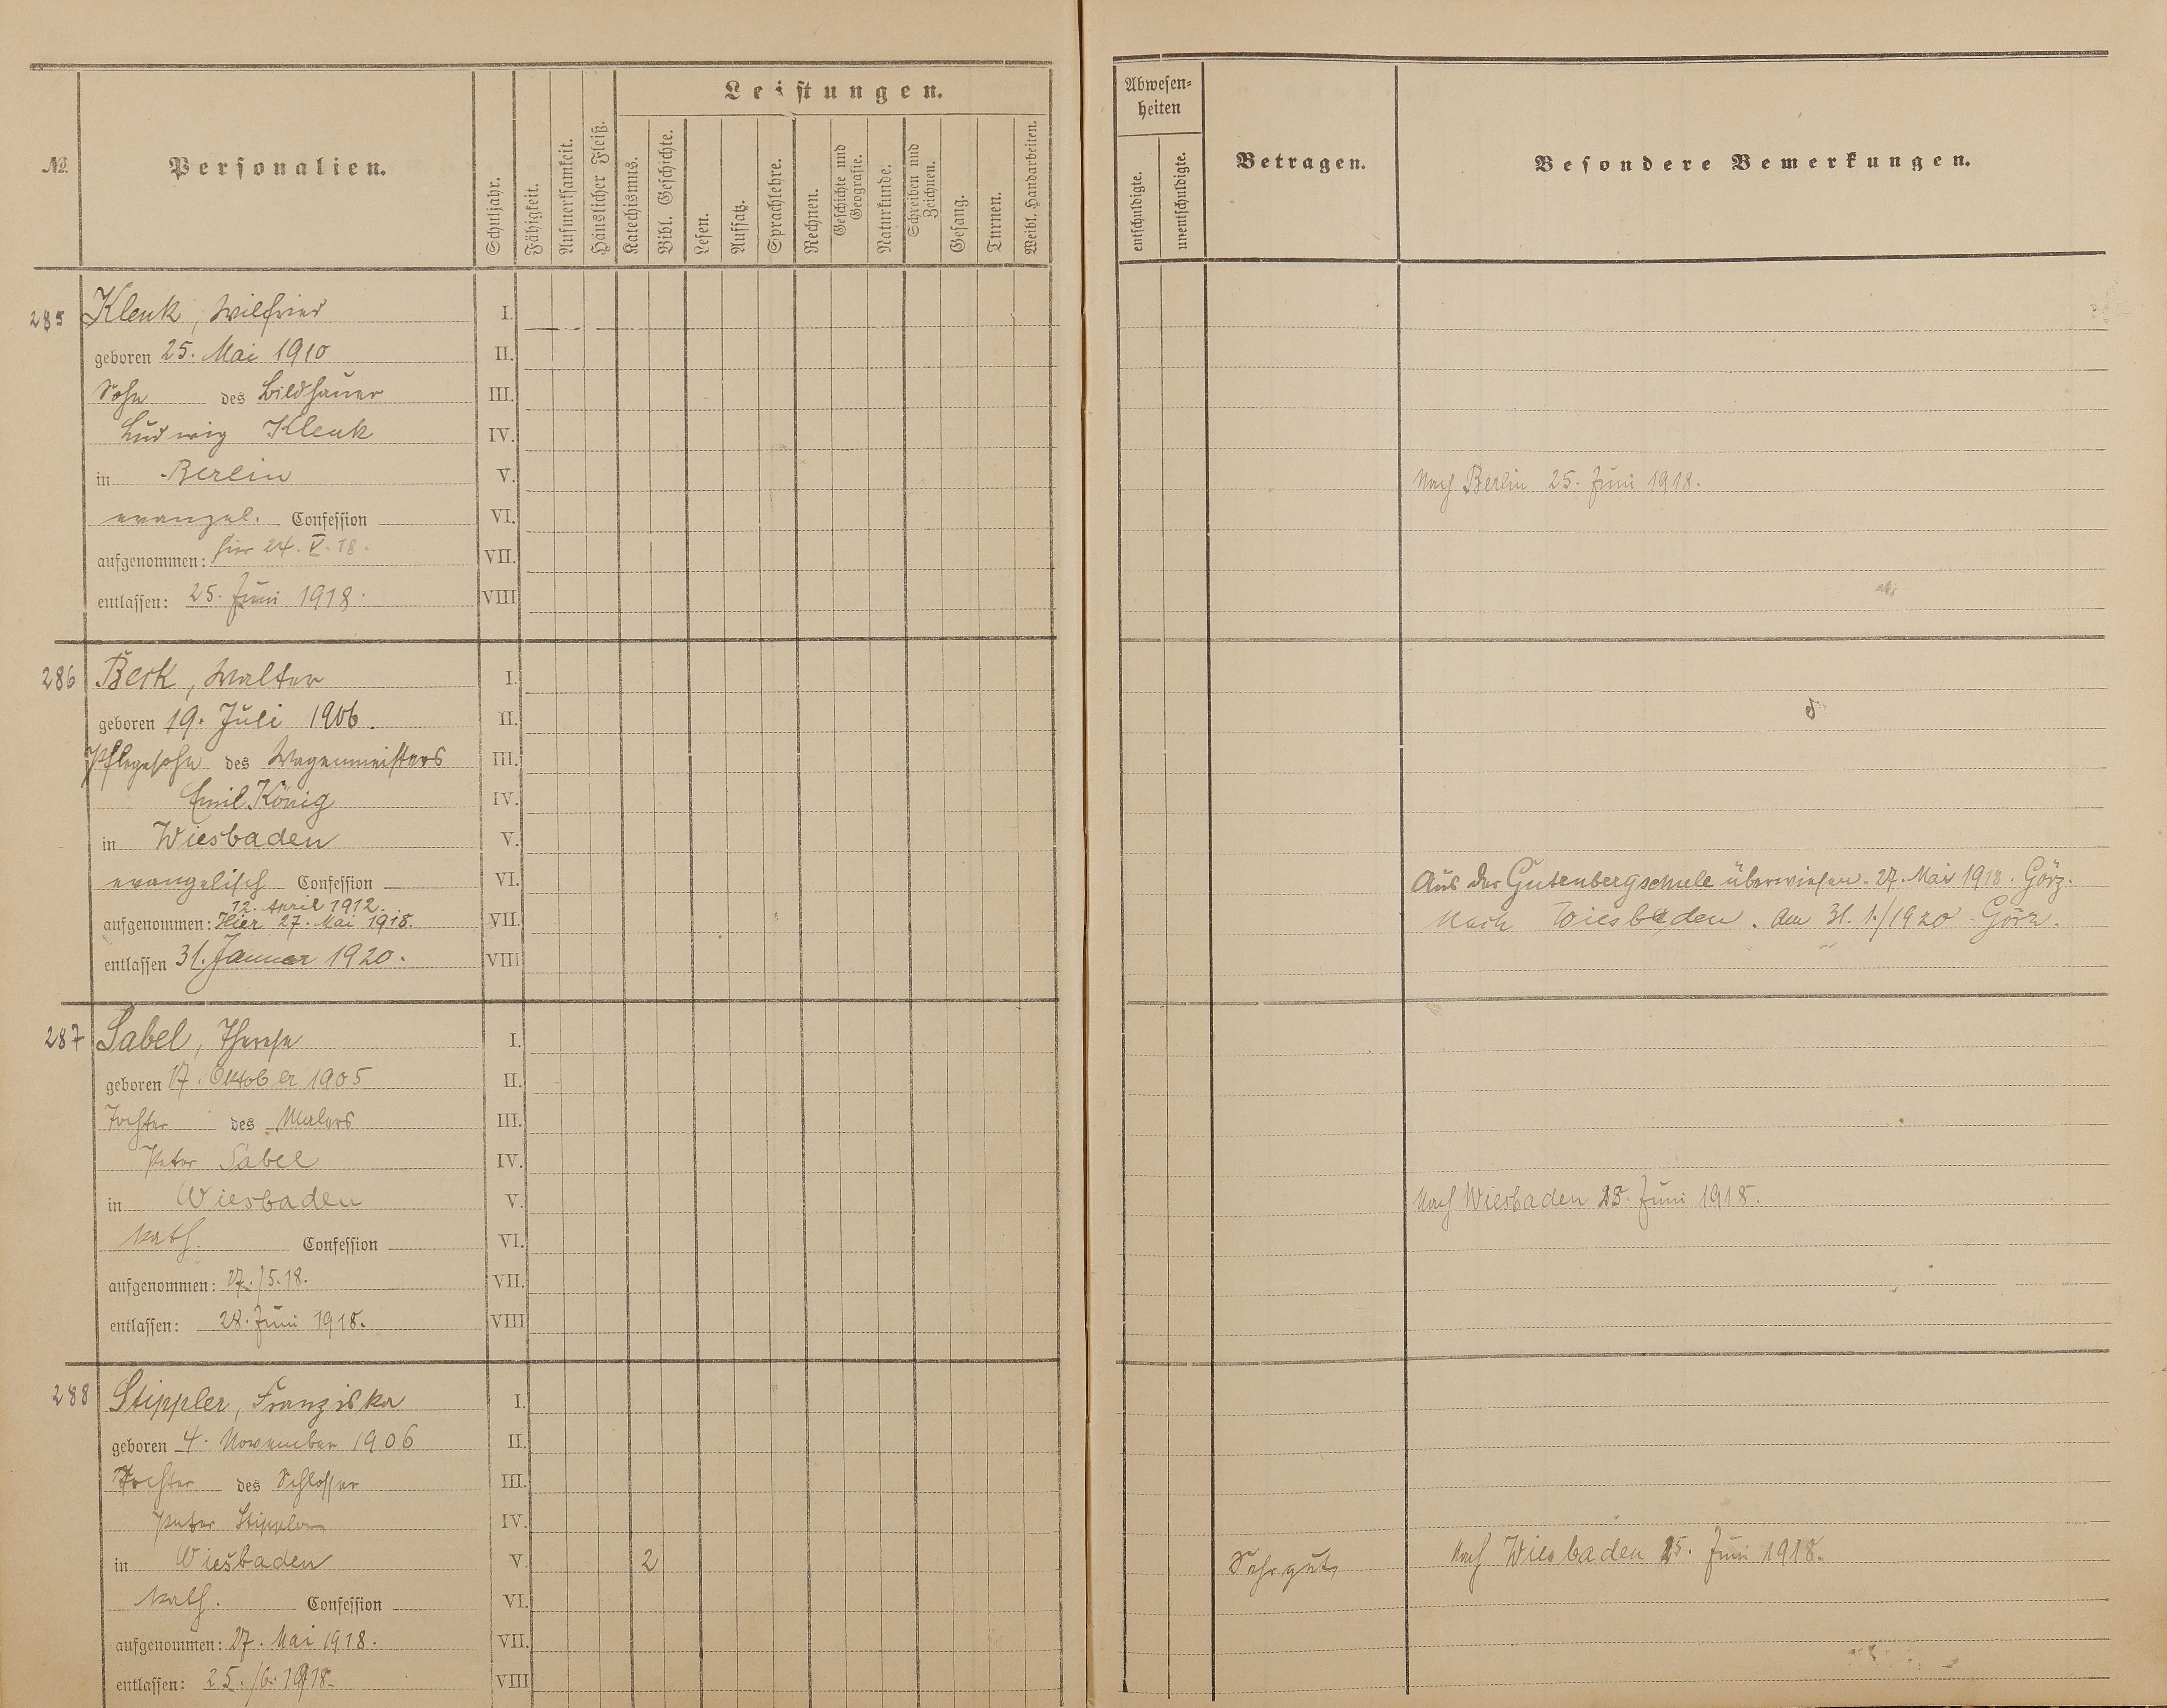 Leistungen.
Abwesen-
heiten
№
Personalien.
Schuljahr.
Fähigkeit.
Aufmerksamkeit.
Häuslicher Fleiß.
Katechismus.
Bibl. Geschichte.
Lesen.
Aufsatz.
Sprachlehre.
Rechnen.
Geschichte und
Geografie.
Naturkunde.
Schreiben und
Zeichnen.
Gesang.
Turnen.
Weibl. Handarbeiten.
entschuldigte.
unentschuldigte.
Betragen.
Besondere Bemerkungen.
285 Klenk, Wilfried I.
geboren 25. Mai 1910 II.
Sohn des Bildhauer III.
Ludwig Klenk IV.
in Berlin V. Nach Berlin 25. Juni 1918.
evangel. Confession VI.
aufgenommen: hier 24. V. 18. VII.
entlassen: 25. Juni 1918. VIII
286 Beck, Walter I.
geboren 19. Juli 1906. II.
Pflegesohn des Wagenmeisters III.
Emil König IV.
in Wiesbaden V.
evangelisch Confession VI. Aus der Gutenbergschule überwiesen. 27. Mai 1918. Görz.
12. April 1912.
aufgenommen: Hier 27. Mai 1918. VII. Nach Wiesbaden. Am 31. 1./1920 - Görz.
entlassen 31. Januar 1920. VIII
287 Sabel, Therese I.
geboren 17. Oktober 1905 II.
Tochter des Malers III.
Peter Sabel IV.
in Wiesbaden V. Nach Wiesbaden 25. Juni 1918.
Kath. Confession VI.
aufgenommen: 27./5.18. VII.
entlassen: 28. Juni 1918. VIII
288 Stippler, Franziska I.
geboren 4. November 1906 II.
Tochter des Schlosser III.
Peter Stippler IV.
in Wiesbaden V. 2 Sehr gut Nach Wiesbaden 25. Juni 1918.
Kath. Confession VI.
aufgenommen: 27. Mai 1918. VII.
entlassen: 25./6. 1918. VIII